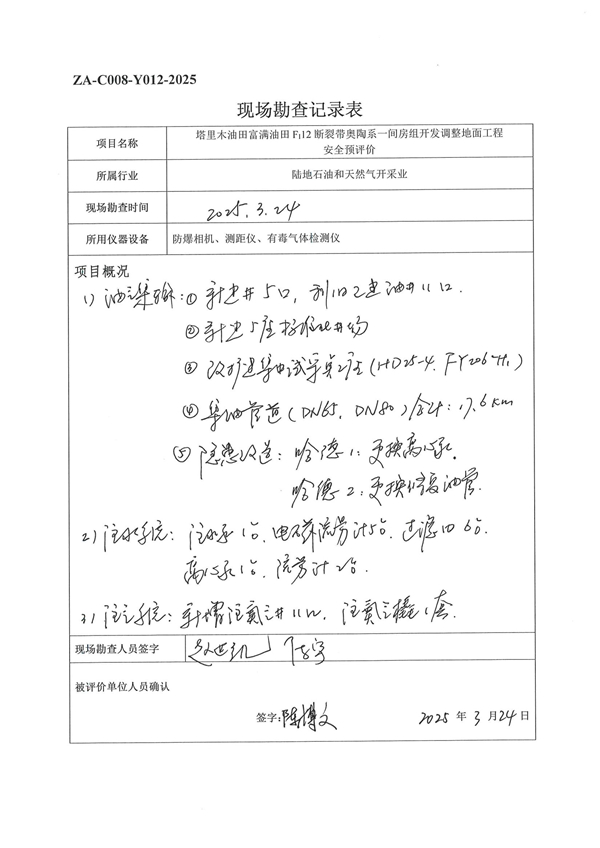 ZA-C008-Y012-2025
现场勘查记录表
项目名称
塔里木油田富满油田 FⅠ12 断裂带奥陶系一间房组开发调整地面工程
安全预评价
所属行业
陆地石油和天然气开采业
现场勘查时间
2025.3.24
所用仪器设备
防爆相机、测距仪、有毒气体检测仪
项目概况
1) 油气集输:① 新建井5口,利旧已建油井11口.
② 新建5座标准化井场
③ 改扩建集中试采点2座(HD25-4、FY206-H1)
④ 集油管道(DN65、DN80)合计:17.6km
⑤ 隐患改造:哈德1:更换离心泵.
哈德2:更换 油管.
2) 注水系统:注水泵1台、电磁流量计5台、过滤 6台
离心泵1台、流量计2台.
3) 注气系统:新增注氮气井11口,注氮气橇1套.
现场勘查人员签字
被评价单位人员确认
签字:陈博文
2025 年 3 月 24 日